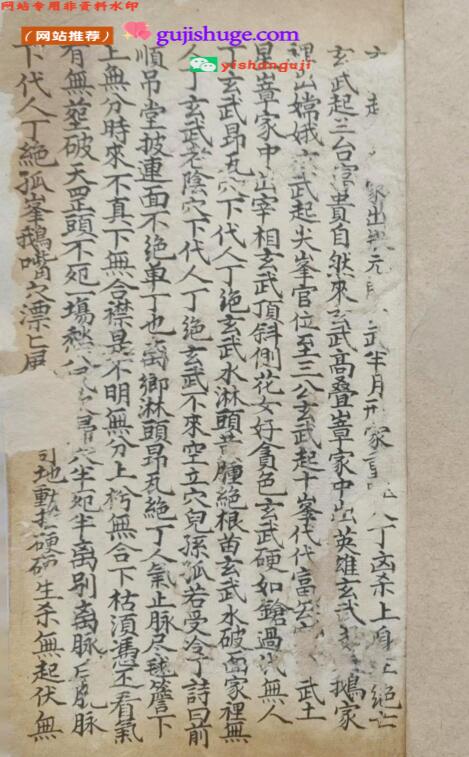 网站专用非资料水印
（网站推荐） gujishuge.com
yishanguji
家出 元 武半月形家 人丁凶杀上身 絕亡
玄武起三台富貴自然來玄武高叠嶂家中出英雄玄武 鵝家
裡出嫦娥玄武起尖峯官位至三公玄武起十峯代代富 武土
星嶂家中出宰相玄武頂斜側花女好貪色玄武硬如鎗過代無人
丁玄武昂瓦穴下代人丁絕玄武水淋頭黄腫絕根苗玄武水破面家裡無
人丁玄武老陰穴下代人丁絕玄武不來空立穴兒孫孤若受冷丁詩曰前
順吊堂披連面不絕車丁也离鄉淋頭昂瓦絕丁人氣止脉尽毬簷下
上無分時來不真下無合襟是不明無分上枔無合下枯須凴丕看氣
有無塟破天罡頭不死 塲愁 穴半死半离別离脉 脉
下代人丁絕孤峯鵝嘴穴漂 地動 硬 生杀無起伏無